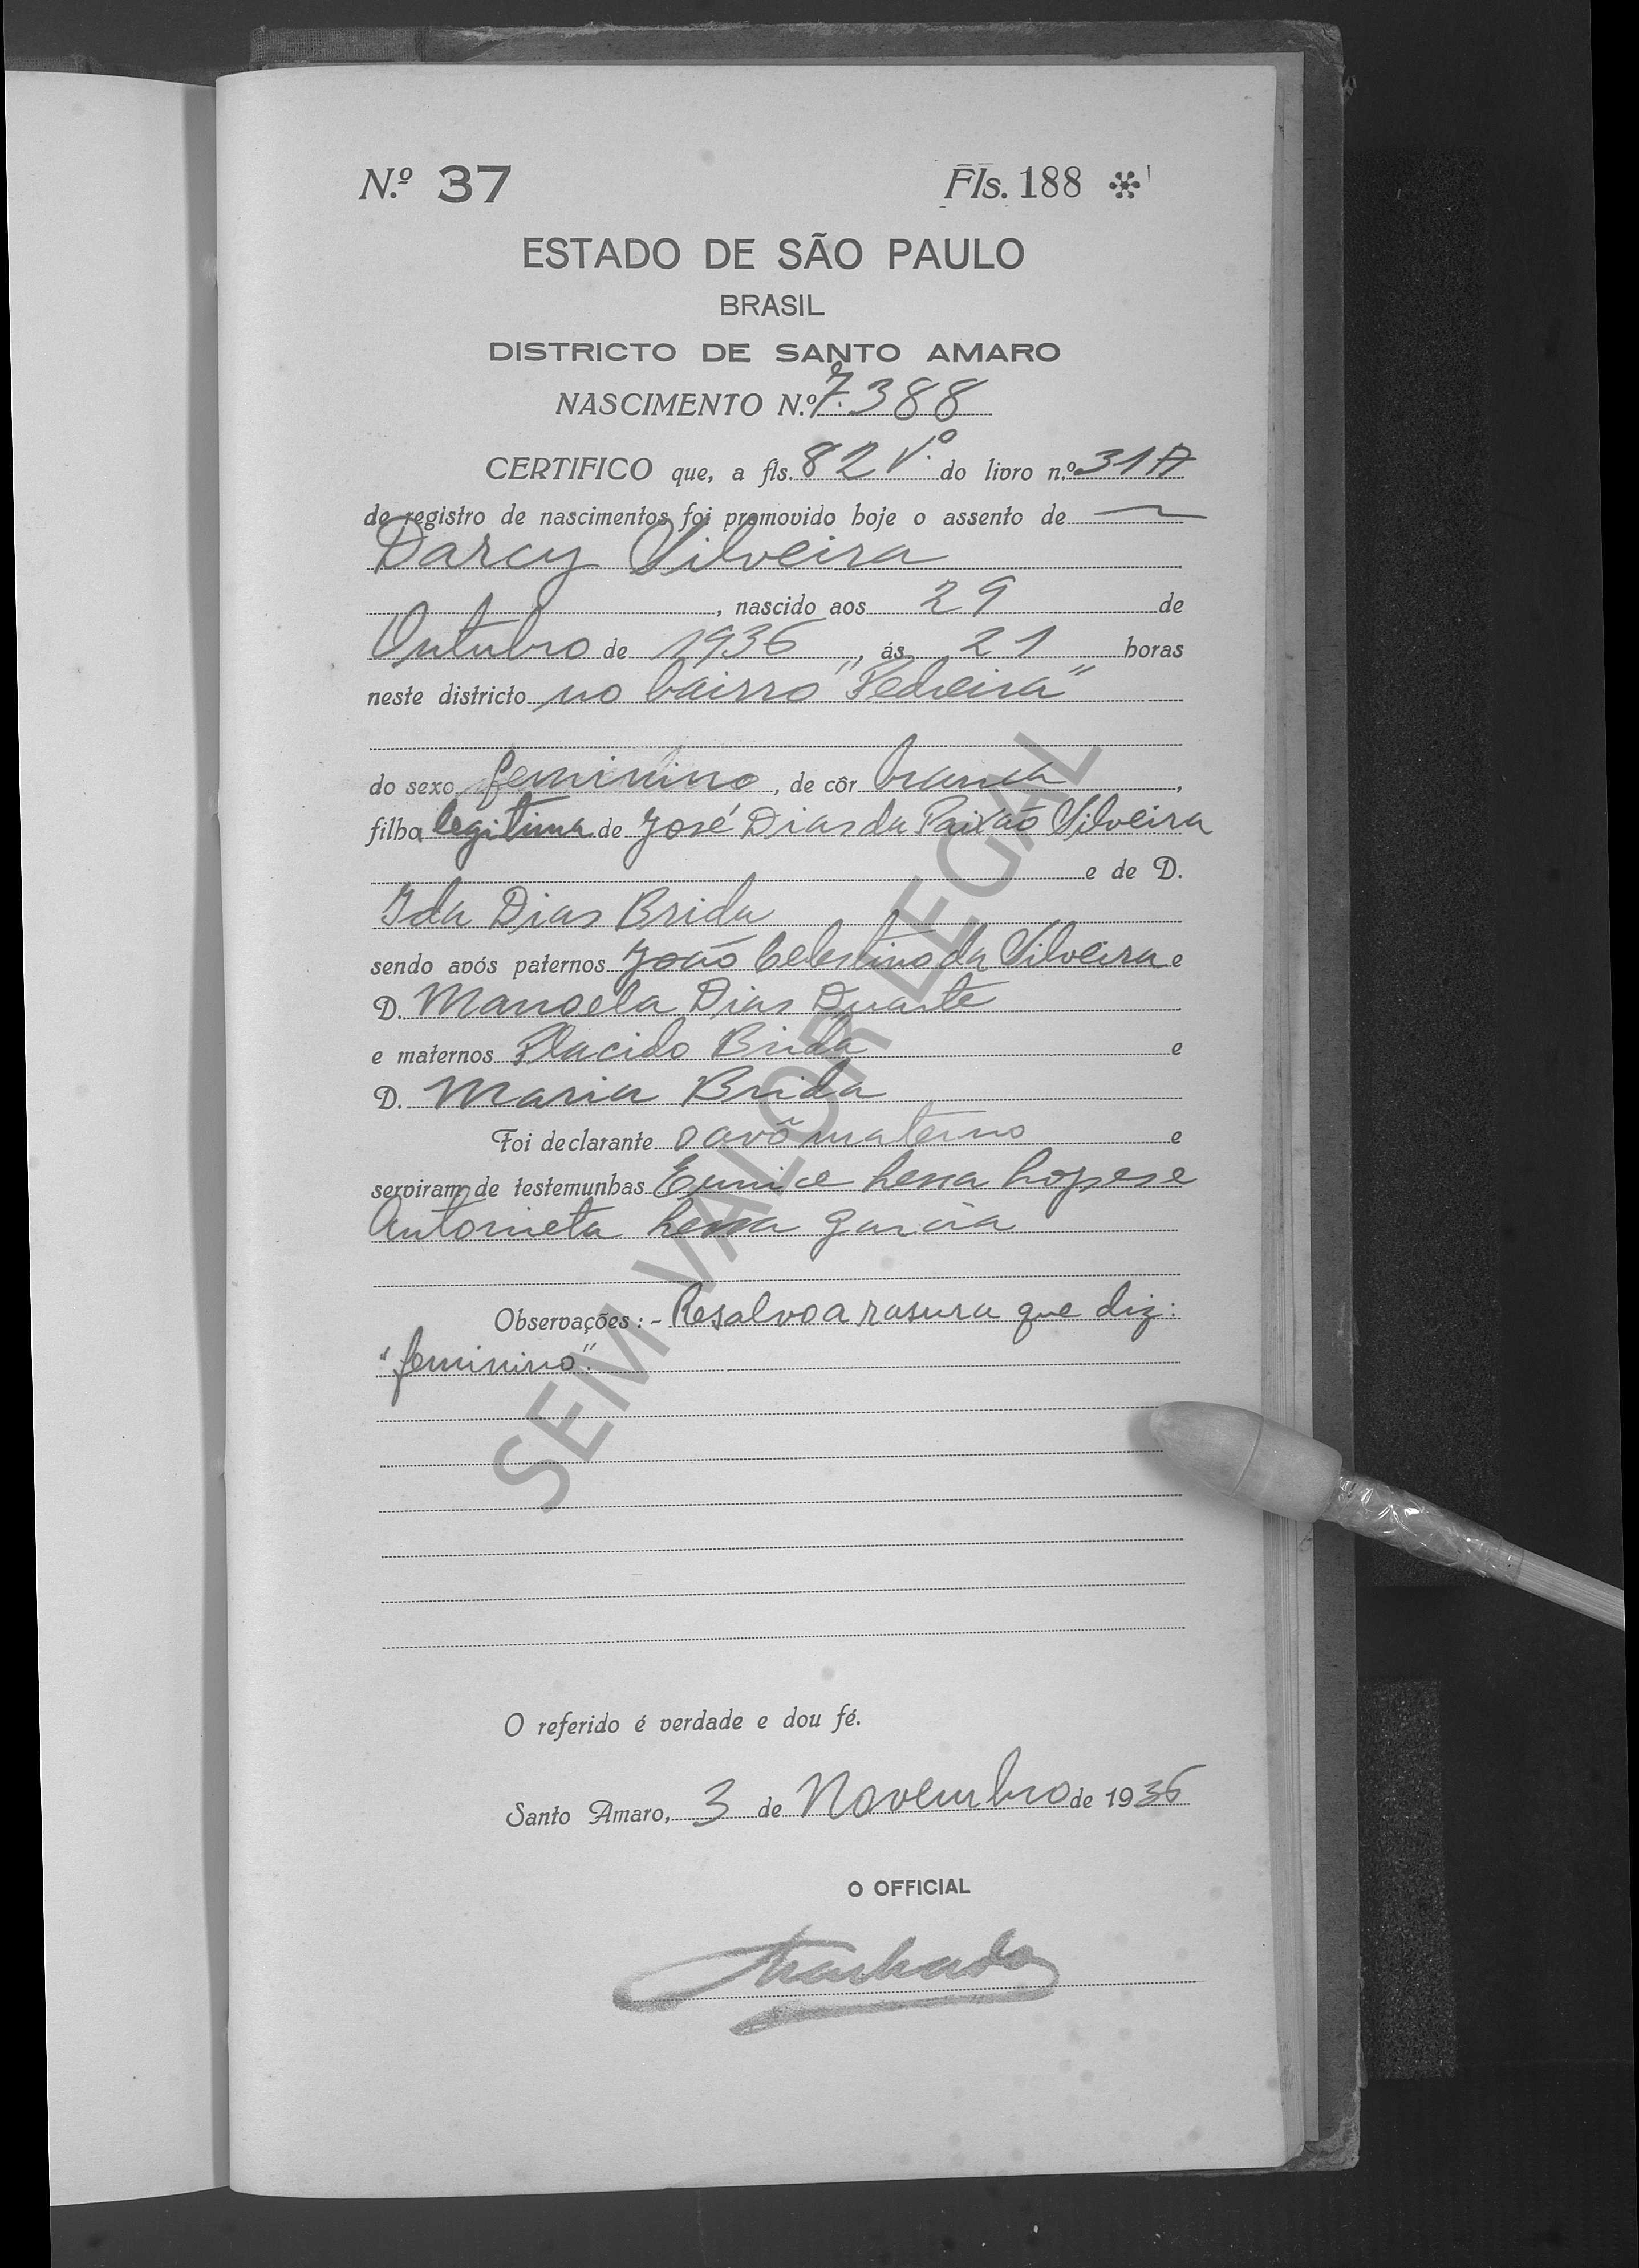 N.º 37 Fls. 188 *
ESTADO DE SÃO PAULO
BRASIL
DISTRICTO DE SANTO AMARO
NASCIMENTO N.º 7.388
CERTIFICO que, a fls. 82 Vº do livro n.º 31A
de registro de nascimentos foi promovido hoje o assento de
Darcy Silveira
, nascido aos 29 de
Outubro de 1936, ás 21 horas
neste districto no bairro "Pedreira"
do sexo feminino, de côr branca,
filha legitima de José Dias da Paixão Silveira
e de D.
Ida Dias Brida
sendo avós paternos João Celestino da Silveira e
D. Manoela Dias Duarte
e maternos Placido Brida e
D. Maria Brida
Foi declarante o avô materno e
serviram de testemunhas Eunice Lessa Lopes e
Antonieta Lessa Garcia
Observações: - Resalvo a rasura que diz:
"feminino".
SEM VALOR LEGAL
O referido é verdade e dou fé.
Santo Amaro, 3 de Novembro de 1936
O OFFICIAL